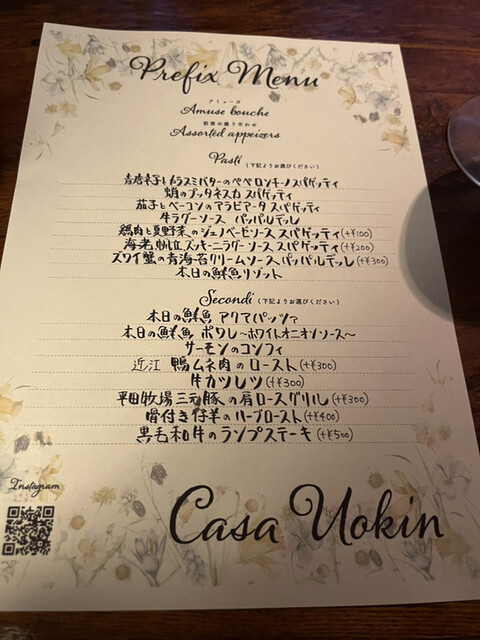 Prefix Menu
アミューズ
Amuse bouche
前菜の盛り合わせ
Assorted appeizers
Pasti (下記よりお選びください)
青唐辛子とカラスミバターのペペロンチーノスパゲッティ
蛸のプッタネスカ スパゲッティ
茄子とベーコンのアラビアータ スパゲッティ
牛ラグーソース パッパルデッレ
鶏肉と夏野菜のジェノベーゼソース スパゲッティ(+¥100)
海老 帆立 ズッキーニラグーソース スパゲティ(+¥200)
ズワイ蟹の青海苔クリームソース パッパルデッレ(+¥300)
本日の鮮魚リゾット
Secondi (下記よりお選びください)
本日の鮮魚 アクアパッツァ
本日の鮮魚 ポワレ~ホワイトオニオンソース~
サーモンのコンフィ
近江 鴨ムネ肉のロースト(+¥300)
牛カツレツ(+¥300)
平田牧場 三元豚の肩ロースグリル(+¥300)
骨付き仔羊のハーブロースト(+¥400)
黒毛和牛のランプステーキ(+¥500)
Instagram
Casa Uokin